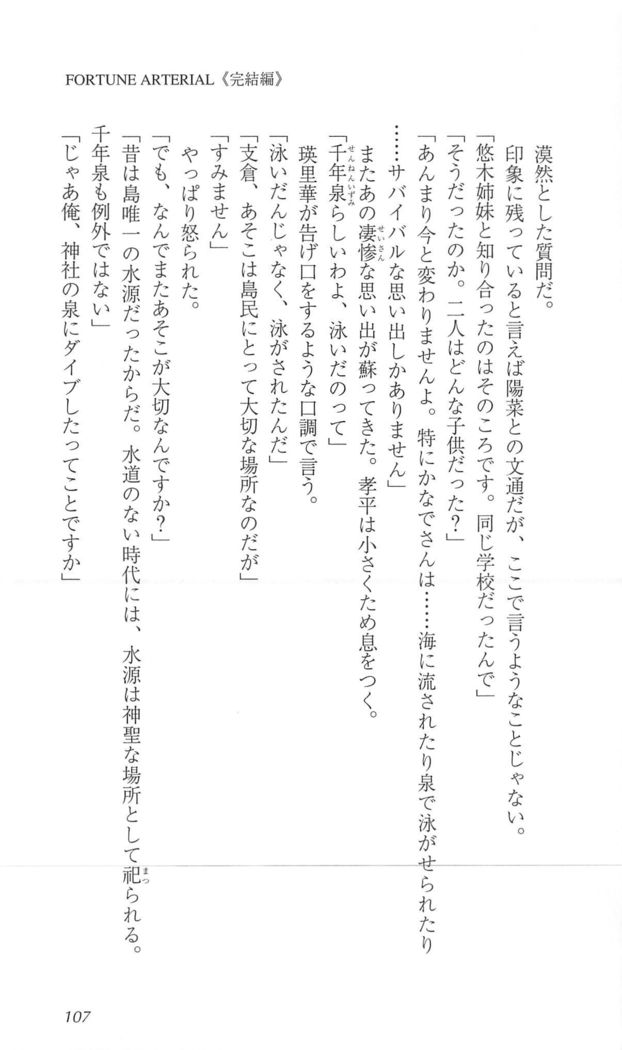 FORTUNE ARTERIAL《完結編》
漠然とした質問だ。
印象に残っていると言えば陽菜との文通だが、ここで言うようなことじゃない。
「悠木姉妹と知り合ったのはそのころです。同じ学校だったんで」
「そうだったのか。二人はどんな子供だった？」
「あんまり今と変わりませんよ。特にかなでさんは……海に流されたり泉で泳がせられたり
……サバイバルな思い出しかありません」
またあの凄惨な思い出が蘇ってきた。孝平は小さくため息をつく。
「千年泉らしいわよ、泳いだのって」
瑛里華が告げ口をするような口調で言う。
「泳いだんじゃなく、泳がされたんだ」
「支倉、あそこは島民にとって大切な場所なのだが」
「すみません」
やっぱり怒られた。
「でも、なんでまたあそこが大切なんですか？」
「昔は島唯一の水源だったからだ。水道のない時代には、水源は神聖な場所として祀られる。
千年泉も例外ではない」
「じゃあ俺、神社の泉にダイブしたってことですか」
107